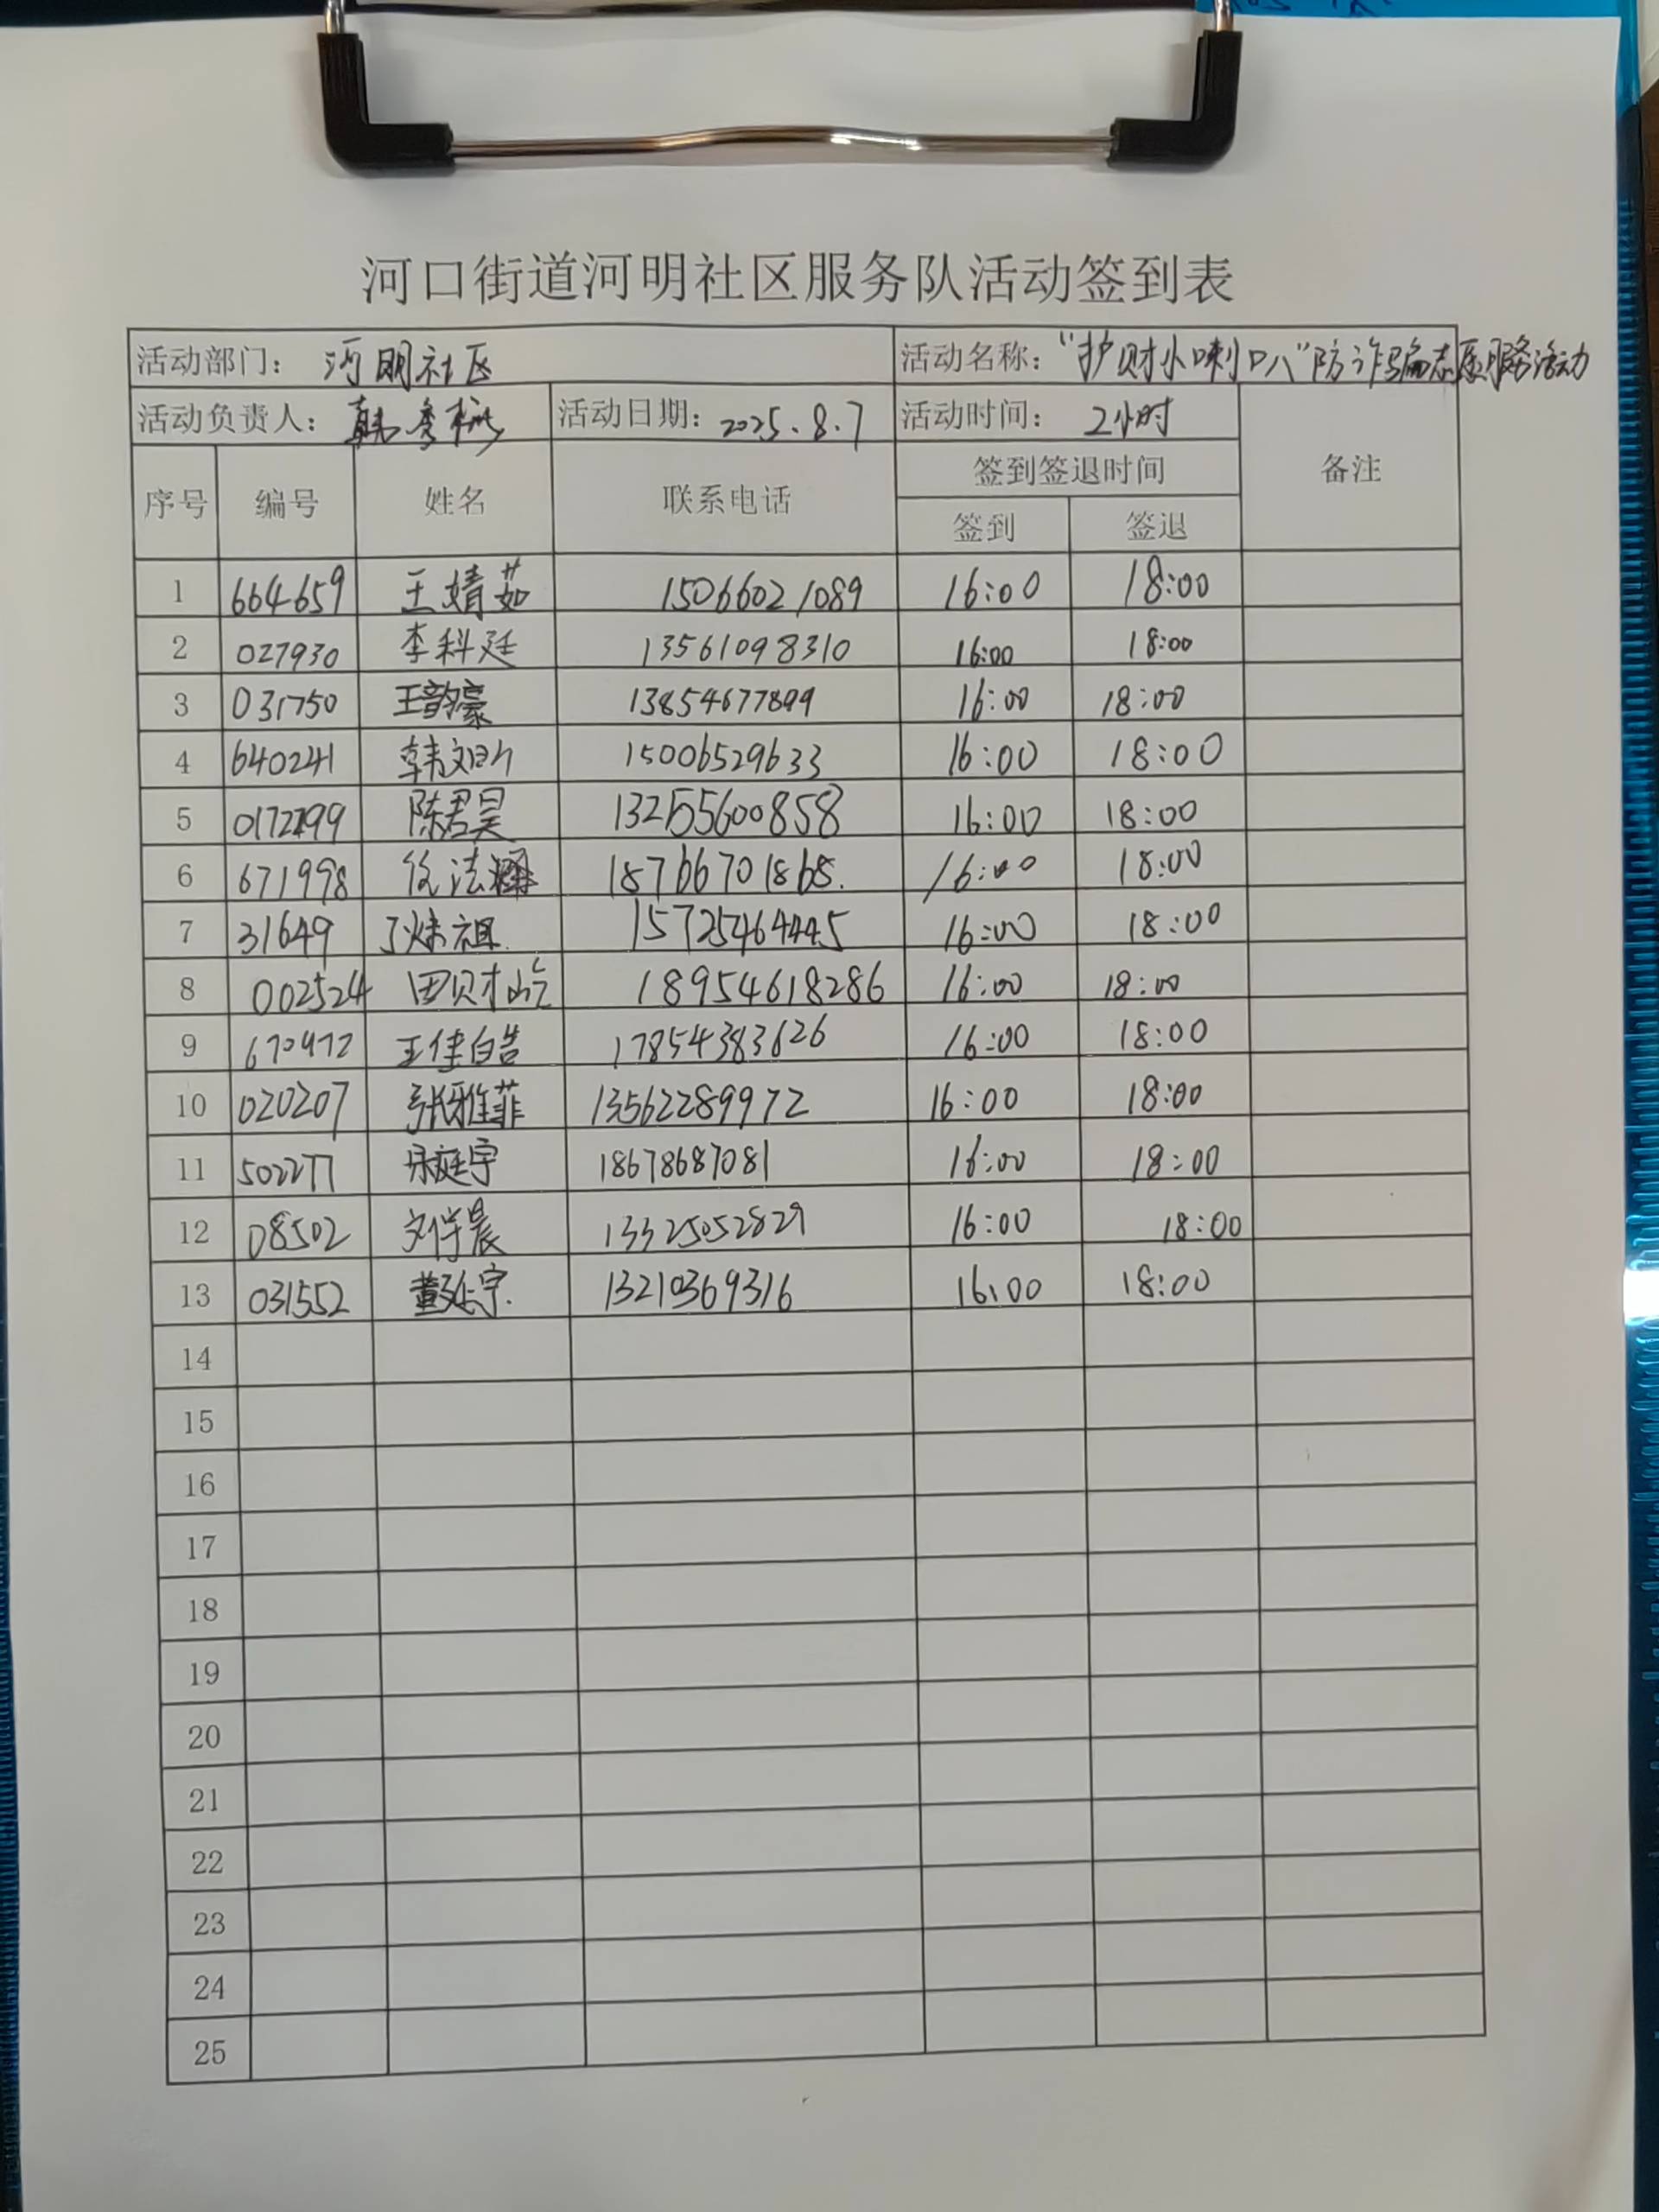 河口街道河明社区服务队活动签到表
活动部门： 河明社区 活动名称："护财小喇叭"防诈骗志愿服务活动
活动负责人： 韩 活动日期：2025.8.7 活动时间： 2小时
序号 编号 姓名 联系电话 签到签退时间 备注
签到 签退
1 664659 王婧茹 15066021089 16:00 18:00
2 027930 李科廷 13561098310 16:00 18:00
3 031750 王韵豪 13854677899 16:00 18:00
4 640241 韩 15006529633 16:00 18:00
5 陈君昊 13255600858 16:00 18:00
6 671998 徐法 18766701868. 16:00 18:00
7 31649 丁 祖 15725464445 16:00 18:00
8 002524 田财屹 18954618286 16:00 18:00
9 670472 王佳皓 17854383626 16:00 18:00
10 020207 张雅菲 13562289972 16:00 18:00
11 502277 庭宇 18678687081 16:00 18:00
12 08502 刘 晨 13325052829 16:00 18:00
13 031552 董 宇 13210369316 16:00 18:00
14
15
16
17
18
19
20
21
22
23
24
25